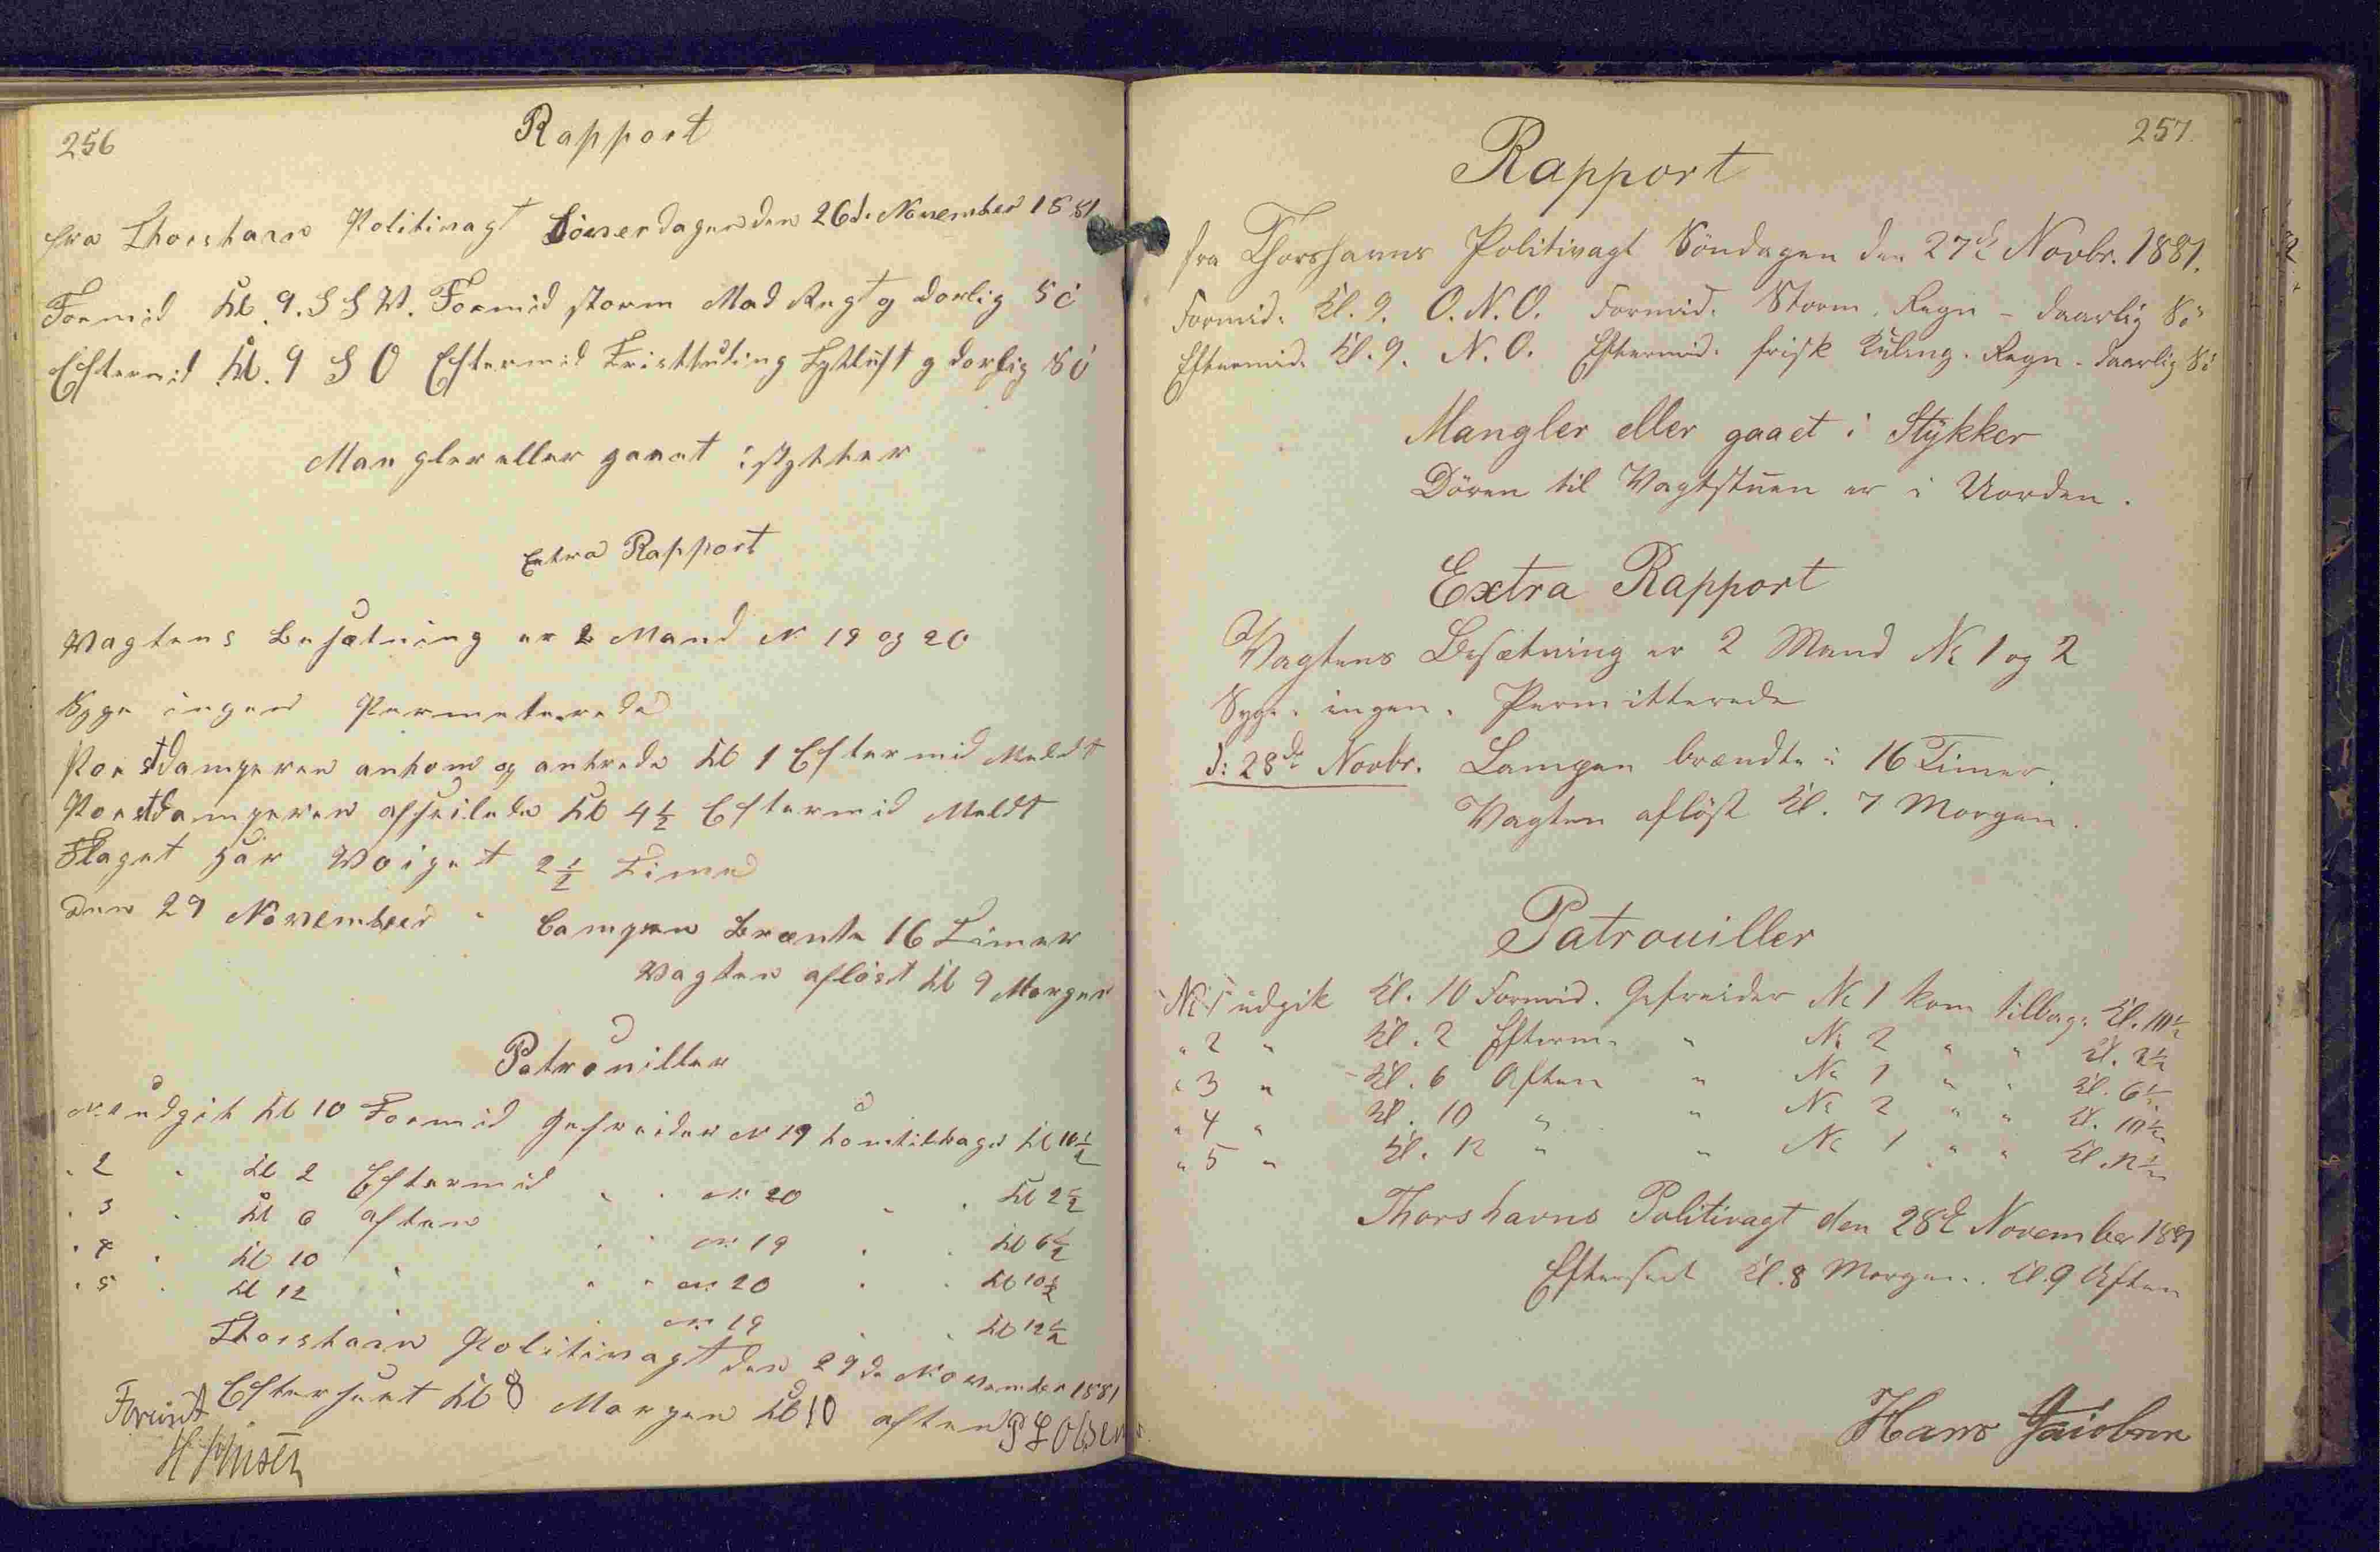 256
Rapport
fra Thorshavn Politivagt Löverdagen den 26d. November 1881
Formid Kl. 9. S S W. Formid storm Mad Regt og dorlig Sö
Eftermid Kl. 9 S O Eftermid Friskkuling Tyklüft og dorlig Sö
Mangler eller gaaet i stykker
Extra Rapport
Vagtens Besætning er 2 Mand N 19 og 20
Syge ingen Permeterede
Postdamperen ankom og ankrede Kl 1 Eftermid Meldt
Postdamperen afseilede Kl 4½ Eftermid Meldt
Flaget har Voiget 2½ Time
Den 29 November " Lampen Brænte 16 Timer
Vagten aflöst Kl 9 Morgen
Patrouiller
N. 1 udgik Kl 10 Formid Gefreider N 19 kom tilbage Kl 10½
" 2 " Kl 2 Eftermid " " N. 20 " " Kl 2½
" 3 " Kl 6 aften " " N. 19 " " Kl 6½
" 4 " Kl 10 " " " N. 20 " " Kl 10½
" 5 " Kl 12 " " N. 19 " " Kl 12½
Thorshavn Politivagt den 29de November 1881
Efterseet Kl 8 Morgen Kl 10 aften
Forevist
257.
Rapport
fra Thorshavns Politivagt Söndagen den 27de Novbr. 1881.
Formid. Kl. 9. O.N.O. Formid. Storm. Regn - daarlig Sö
Eftermid. Kl. 9. N.O. Eftermid. frisk Kuling. Regn - daarlig Sö
Mangler eller gaaet i Stykker
Dören til Vagtstuen er i Uorden.
Extra Rapport
Vagtens Besætning er 2 Mand No 1 og 2
Syge. ingen. Permitterede
d: 28de Novbr. Lampen brændte i 16 Timer.
Vagten aflöst Kl. 7 Morgen.
Patrouiller
No 1 udgik Kl. 10 Formid. Gefreider No 1 kom tilbage Kl. 10½
" 2 " Kl. 2 Efterm. " No 2 " " Kl. 2½
" 3 " Kl. 6 Aften " No 1 " " Kl. 6½
" 4 " Kl. 10 " " No 2 " " Kl. 10½
" 5 " Kl. 12 " " No 1 " " Kl. 12½
Thorshavns Politivagt den 28de November 1881
Efterseet Kl. 8 Morgen. Kl. 9 Aften
Hans Jacobsen